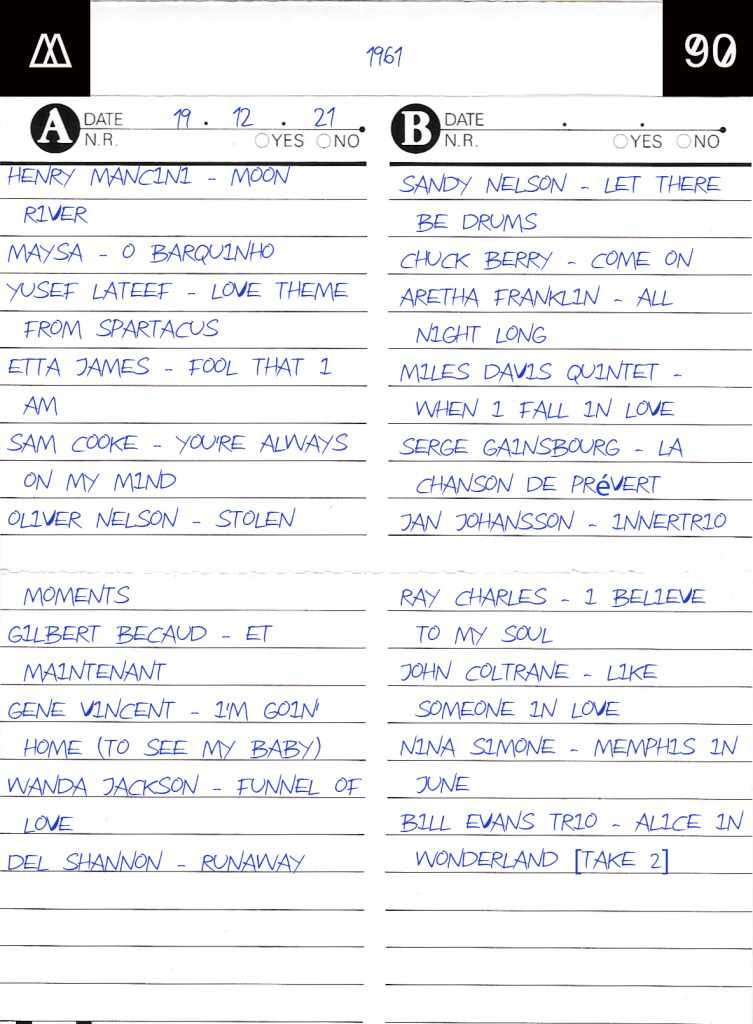 1961
90
A DATE 19 . 12 . 21
N.R. YES NO
HENRY MANCINI - MOON
RIVER
MAYSA - O BARQUINHO
YUSEF LATEEF - LOVE THEME
FROM SPARTACUS
ETTA JAMES - FOOL THAT I
AM
SAM COOKE - YOU'RE ALWAYS
ON MY MIND
OLIVER NELSON - STOLEN
MOMENTS
GILBERT BECAUD - ET
MAINTENANT
GENE VINCENT - I'M GOIN'
HOME (TO SEE MY BABY)
WANDA JACKSON - FUNNEL OF
LOVE
DEL SHANNON - RUNAWAY
B DATE . .
N.R. YES NO
SANDY NELSON - LET THERE
BE DRUMS
CHUCK BERRY - COME ON
ARETHA FRANKLIN - ALL
NIGHT LONG
MILES DAVIS QUINTET -
WHEN I FALL IN LOVE
SERGE GAINSBOURG - LA
CHANSON DE PRéVERT
JAN JOHANSSON - INNERTRIO
RAY CHARLES - I BELIEVE
TO MY SOUL
JOHN COLTRANE - LIKE
SOMEONE IN LOVE
NINA SIMONE - MEMPHIS IN
JUNE
BILL EVANS TRIO - ALICE IN
WONDERLAND [TAKE 2]